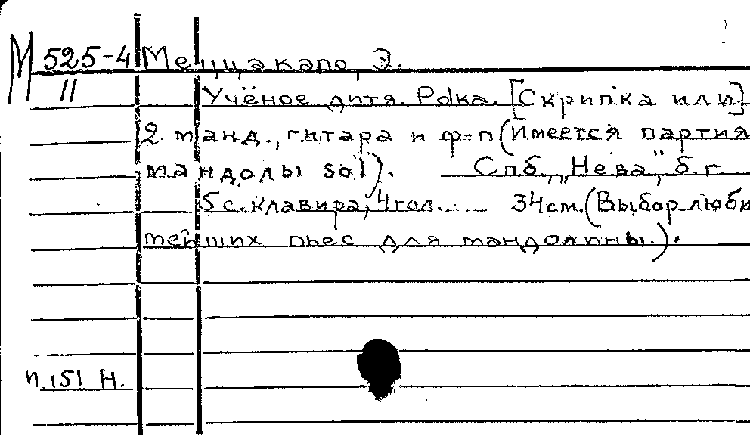 М 525-4 Меццакапо, Э.
II Учёное дитя. Polka. [Скрипка или]
2 манд., гитара и ф-п (Имеется партия
мандолы sol). Спб. „Нева", б.г.
5 с. клавира, 4 гол. 34 см. (Выбор люби
мейших пьес для мандолины.).
п. 151 Н.